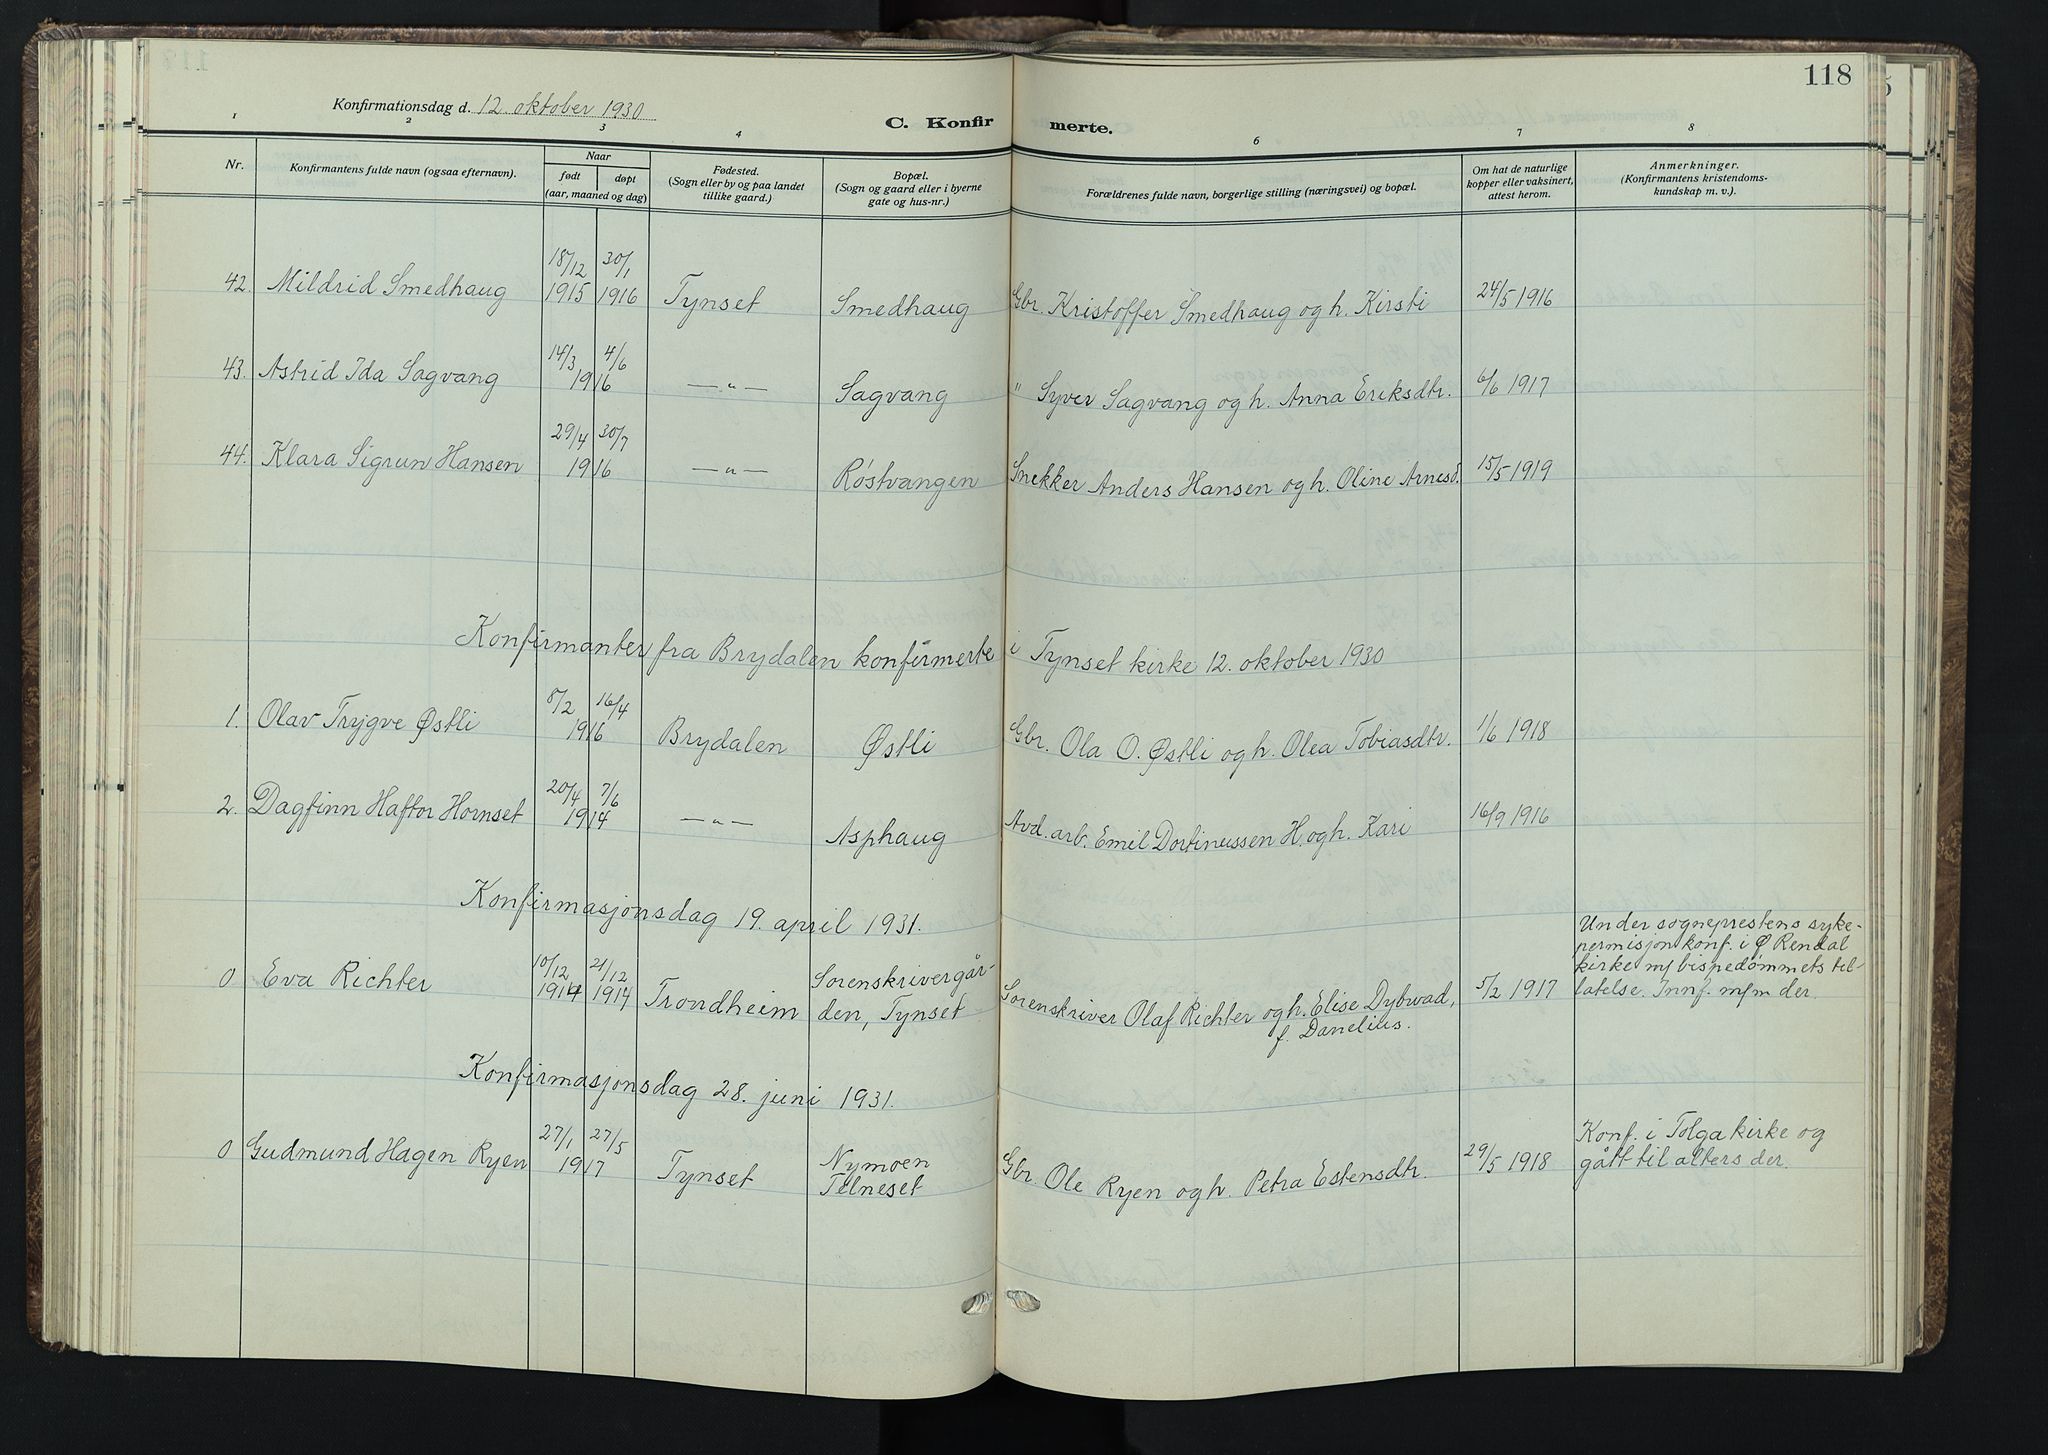 118
Konfirmationsdag d. 12. oktober 1930
C. Konfirmerte.
1 2 3 4 6 7 8
Nr.
Konfirmantens fulde navn (ogsaa efternavn).
Naar
født døpt
(aar, maaned og dag)
Fødested.
(Sogn eller by og paa landet
tillike gaard.)
Bopæl.
(Sogn og gaard eller i byerne
gate og hus-nr.)
Forældrenes fulde navn, borgerlige stilling (næringsvei) og bopæl.
Om hat de naturlige
kopper eller vaksinert,
attest herom.
Anmerkninger.
(Konfirmantens kristendoms-
kundskap m. v.).
18/12 30/1
42. Mildrid Smedhaug 1915 1916 Tynset Smedhaug Gbr. Kristoffer Smedhaug og h. Kirsti 24/5 1916
14/3 4/6
43. Astrid Ida Sagvang 1916 —„— Sagvang " Syver Sagvang og h. Anna Eriksdtr. 6/6 1917
29/4 30/7
44. Klara Sigrun Hansen 1916 —„— Røstvangen Snekker Anders Hansen og h. Oline Arnesd. 15/5 1919
Konfirmanter fra Brydalen konfirmerte i Tynset kirke 12. oktober 1930
8/2 16/4
1. Olav Trygve Østli 1916 Brydalen Østli Gbr. Ola O. Østli og h. Olea Tobiasdtr. 1/6 1918
20/4 7/6
2. Dagfinn Haftor Hornset 1914 —„— Asphaug Avd. arb. Emil Dortinussen H. og h. Kari 16/9 1916
Konfirmasjonsdag 19. april 1931.
Under sogneprestens syke-
permisjon konf. i Ø Rendal
kirke m/ bispedømmets til-
latelse. Innf. m/m der.
10/12 21/12 Sorenskrivergår-
0 Eva Richter 1914 1914 Trondheim den, Tynset Sorenskriver Olaf Richter og h. Elise Dybwad, 5/2 1917
f. Danelius.
Konfirmasjonsdag 28. juni 1931.
27/1 27/5 Nymoen Konf. i Tolga kirke og
0 Gudmund Hagen Ryen 1917 Tynset Telneset Gbr. Ole Ryen og h. Petra Estensdtr. 29/5 1918 gått til alters der.